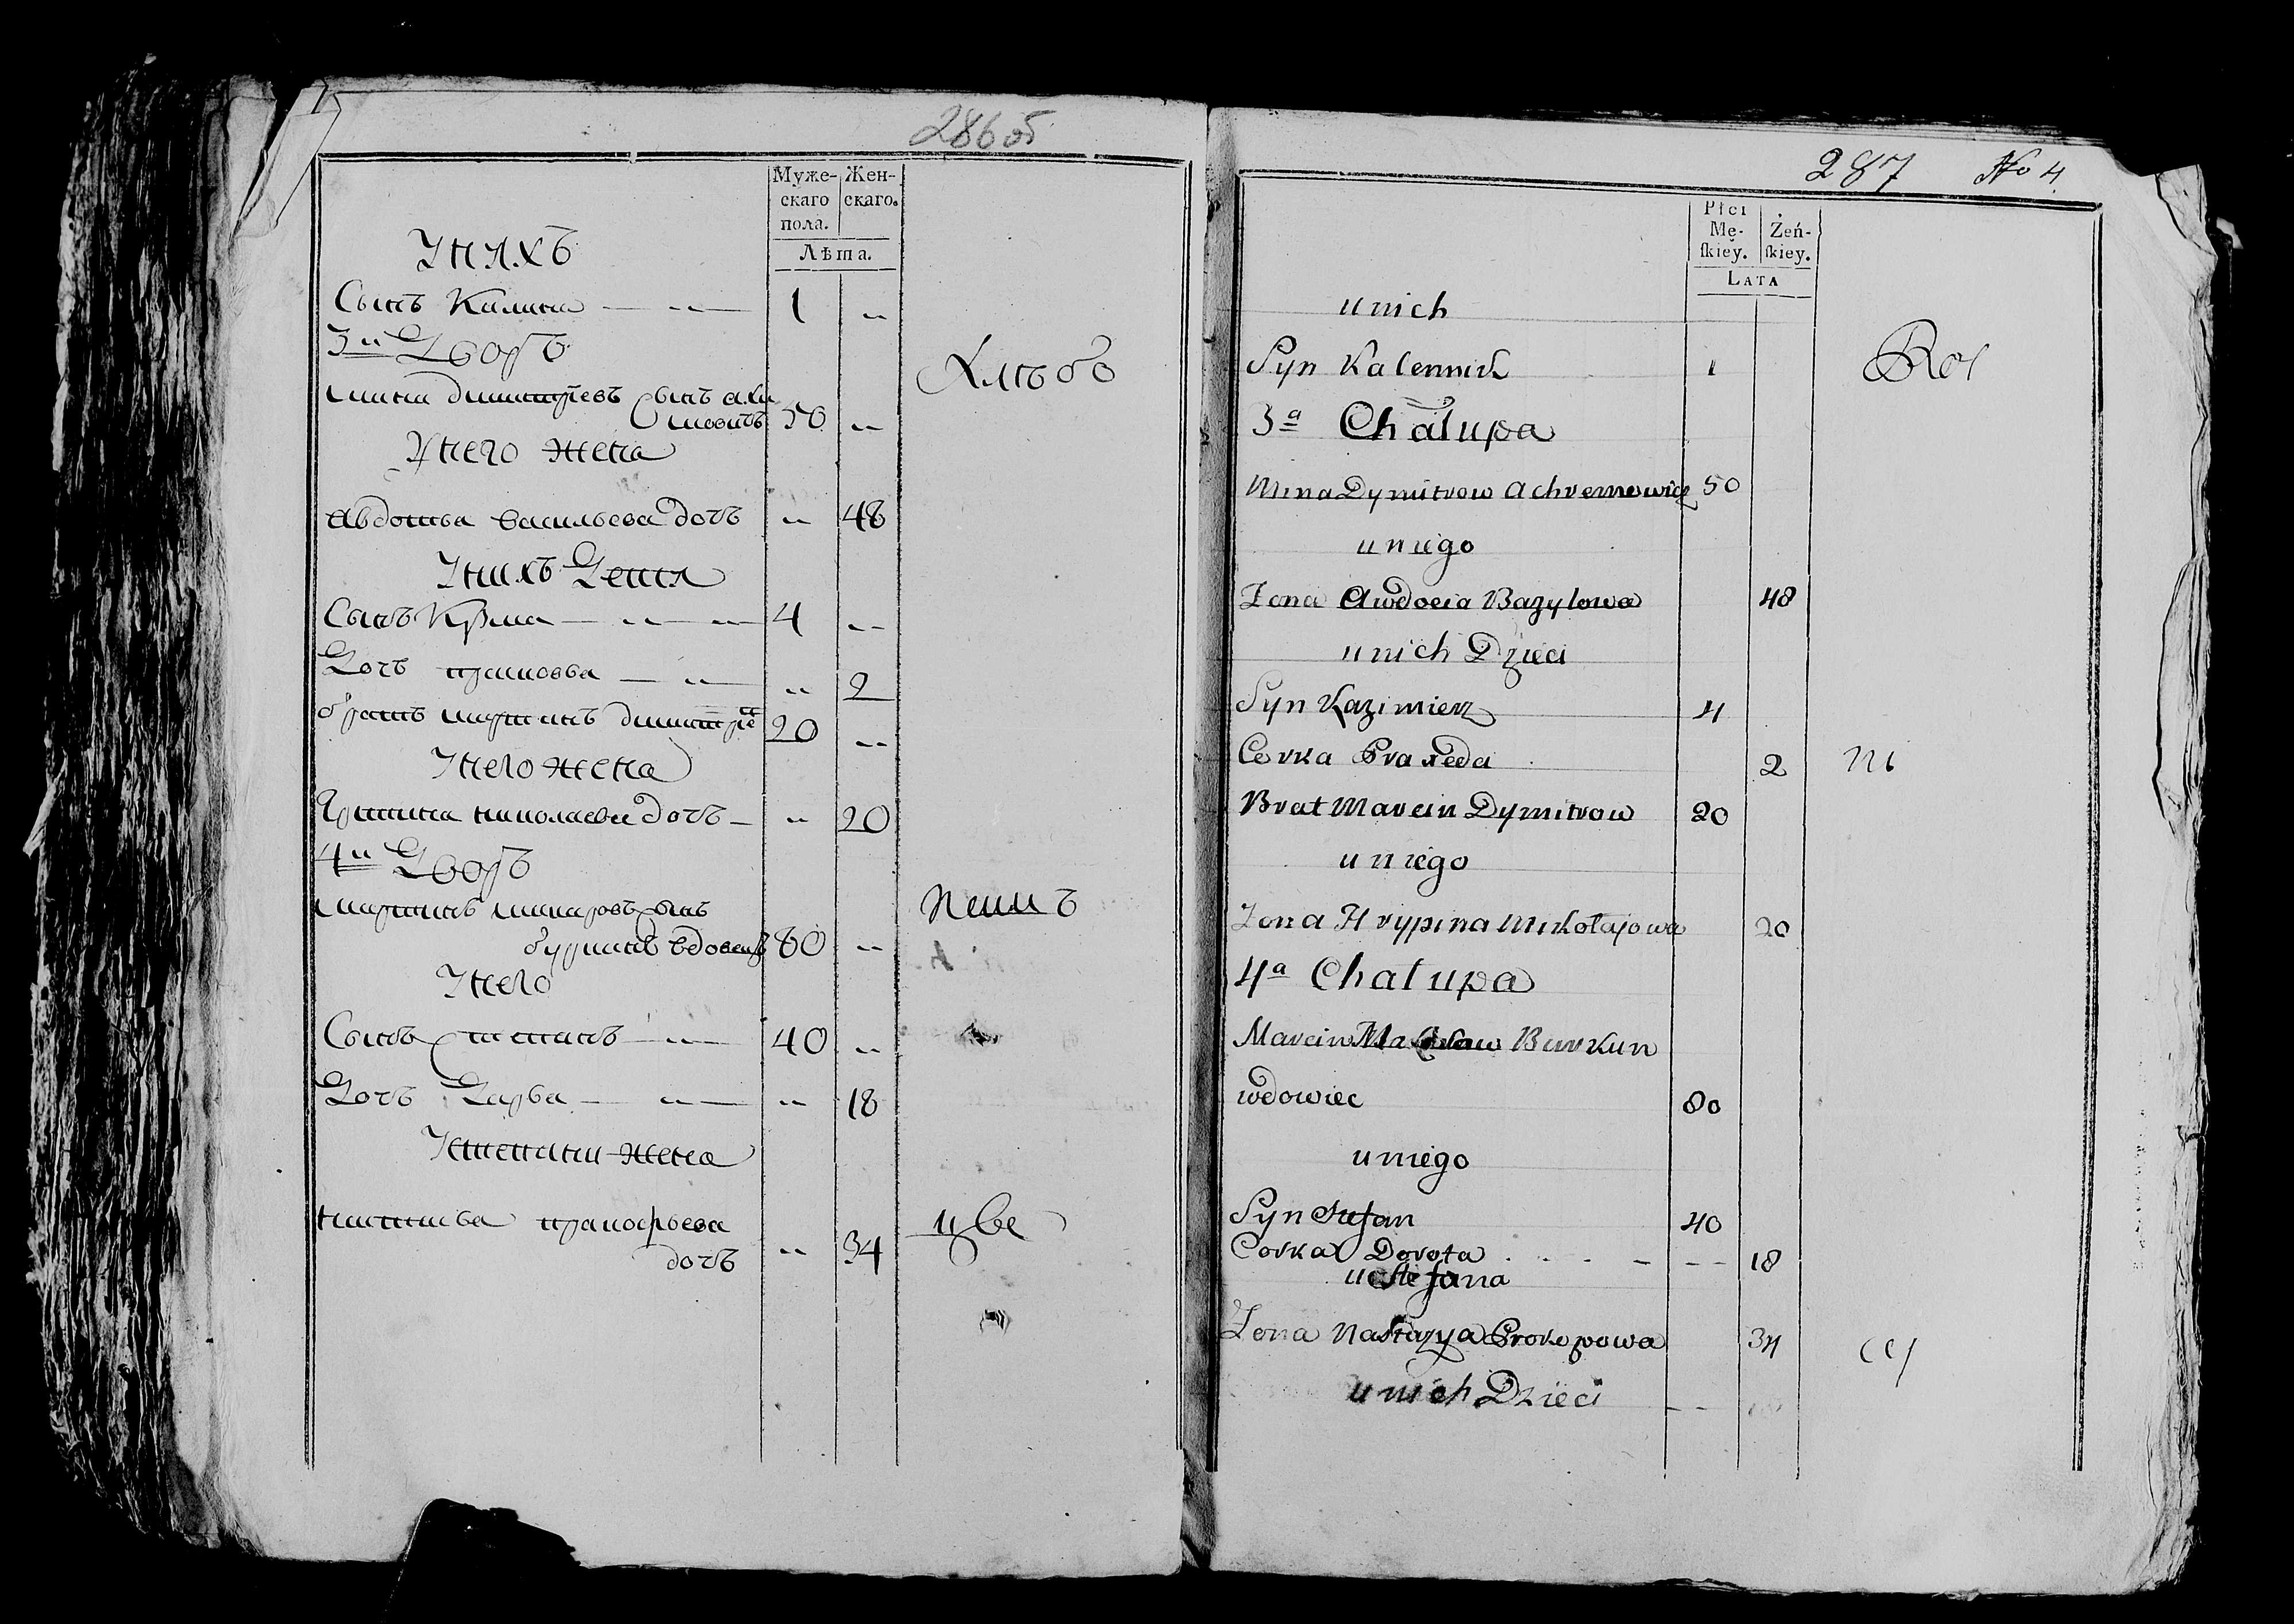 286 об
Муже-
скаго
пола.
Жен-
скаго.
Лѣта.
У нихъ
Сынъ Калина — „ — 1 „
3й Дворъ
Мина Димитріевъ Сынъ Ахи
мовичъ 50 „
У него жена
Авдотья Васильева дочь „ 48
У нихъ Дети
Сынъ Кузма — „ — „ — 4 „
Дочь — „ „ 2
братъ мартинъ димитріе 20 „
У него жена
николаева дочь — „ 20
4й Дворъ
мартинъ макаровъ сынъ
буркинъ вдовецъ 80 „
У него
Сынъ Степанъ — „ — 40 „
Дочь Дарья — „ — „ 18
У Степана жена
Настасья прокофьева
дочь „ 34
Хлѣбо
цве
287 No 4
Płci
Mę-
skiey.
Żeń-
skiey.
LATA
u nich
Syn Kalennik 1
3a Chałupa
Mina Dymitrow Achremowicz 50
u niego
Żona Awdocia Bazylowa 48
u nich Dzieci
Syn Kazimierz 4
Corka Praxeda 2
Brat Marcin Dymitrow 20
u niego
Żona Hrypina Mikołajowa 20
4a Chałupa
Marcin Burkun
wdowiec 80
u niego
Syn Stefan 40
Corka Dorota . . . — -- 18
u Stefana
Żona Nastazya Prokopowa 34
u nich Dzieci --